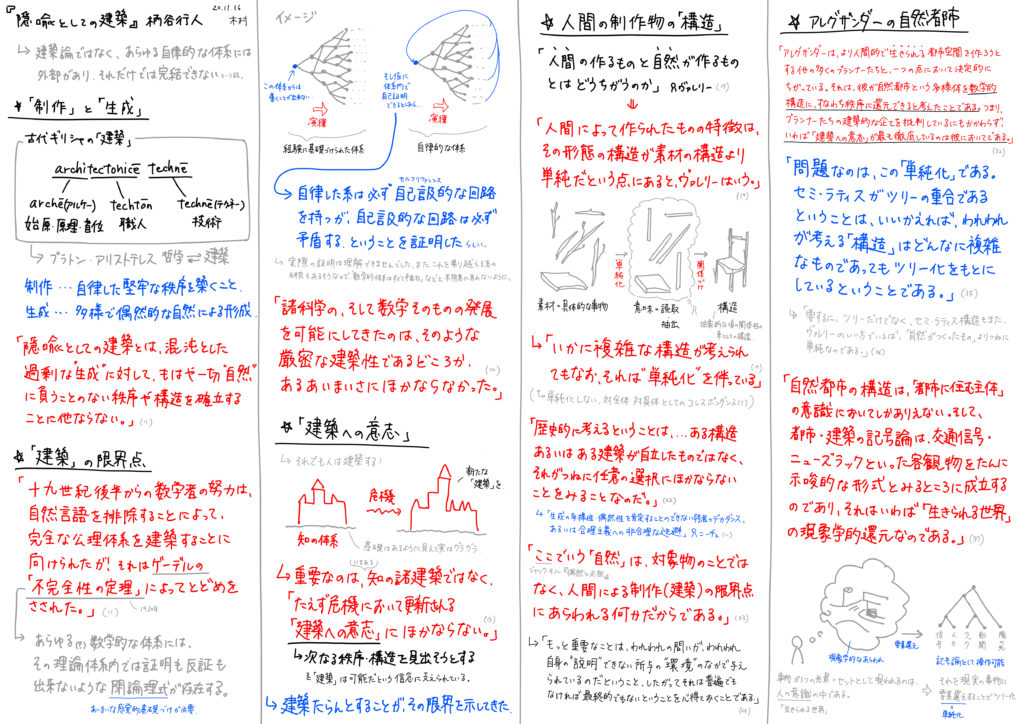 『隠喩としての建築』柄谷行人
20.11.16
木村
↳ 建築論ではなく、あらゆる自律的な体系には
外部があり、それだけでは完結できないという話。
☆「制作」と「生成」
古代ギリシャの「建築」
architectonicē technē
archē(アルケー)
始原・原理・首位
tectōn
職人
technē(テクネー)
技術
↳ プラトン・アリストテレス 哲学⇄建築
制作…自律した堅牢な秩序を築くこと.
生成…多様で偶然的な自然による形成.
「隠喩としての建築とは、混沌とした
過剰な“生成”に対して、もはや一切“自然”
に負うことのない秩序や構造を確立する
ことに他ならない。」(11)
☆「建築」の限界点
「十九世紀後半からの数学者の努力は、
自然言語を排除することによって、
完全な公理体系を建築することに
向けられたが! それはゲーデルの
「不完全性の定理」によってとどめを
さされた。」(11)
1931年
あらゆる(?)数学的な体系には、
その理論体系内では証明も反証も
出来ないような閉論理式が存在する.
あいまいな感覚的基礎づけが必要.
イメージ
この体系からは
導くことが出来ない.
演繹
経験に基礎づけられた体系
そん仮に
体系内で
自己証明
できるとするなら…
演繹
自律的な体系
セルフリファレンス
↳ 自律した系は必ず自己言及的な回路
を持つが、自己言及的な回路は必ず
矛盾する. ということを証明したらしい.
「諸科学の、そして数学そのものの発展
を可能にしてきたのは、そのような
厳密な建築性であるどころか、
あるあいまいさにほかならなかった。」
(12)
☆「建築への意志」
↳ それでも人は建築する!
危機
新たな
「建築」を.
知の体系
基礎はあるように見えて実はグラグラ
↳ 重要なのは、知の諸建築ではなく、
「たえず危機において更新される
「建築への意志」にほかならない。」
↳ 次なる秩序・構造を見出そうとする
「建築」は可能だという信念に支えられている.
↳ 建築たらんとすることが、その限界を示してきた.
☆ 人間の制作物の「構造」
「人間の作るものと自然が作るもの
とはどうちがうのか」 ヴァレリー
⇓
「人間によって作られたものの特徴は、
その形態の構造が素材の構造より
単純だという点、にあると、ヴァレリーはいう。」
単純化
関係づけ
素材=具体的な事物
意味の読取
抽出
構造
抽象的な項の関係性
としての構造.
↳「いかに複雑な構造が考えられ
てもなお、それは“単純化”を伴っている」
「歴史的に考えるということは、…ある構造
あるいはある建築が自立したものではなく、
それがつねに任意の選択にほかならない
ことをみることなのだ。」(22)
↳「生成の多様性・偶然性を肯定することのできない弱者のデカダンス、
あるいは合理主義への非合理な逃避」 ニーチェ
「ここでいう「自然」は、対象物のことでは
なく、人間による制作(建築)の限界点
にあらわれる何かだからである。」(23)
↳「もっと重要なことは、われわれの問いが、われわれ
自身の“説明”できない所与の“環境”のなかで与え
られているのだということ、したがってそれは普遍でも
なければ最終的でもないということを心得ておくことである」
☆ アレグザンダーの自然都市
「アレグザンダーは、より人間的で生きられる都市空間を作ろうと
する他の多くのプランナーたちと、一つの点において決定的に
ちがっている。それは、彼が自然都市という多様体を数学的
構造に、後れい秩序に還元できると考えたことである。つまり、
プランナーたちの建築的な企てを批判しているにもかかわらず、
いわば「建築への意志」が最も徹底しているのは彼においてである」
(32)
「問題なのは、この「単純化」である。
セミ・ラティスがツリーの重合である
ということは、いいかえれば、われわれ
が考える「構造」はどんなに複雑
なものであってもツリー化をもとに
しているということである。」(35)
↳「要するに、ツリーだけでなく、セミ・ラティス構造もまた、
ヴァレリーのいい方でいえば、「自然がつくったもの」よりつねに
単純なのである。」(36)
「自然都市の構造は、「都市に住む主体」
の意識においてしかありえない。そして、
都市・建築の記号論は、交通信号・
ニューズラックといった客観物をたんに
示唆的な形式とみるところに成立する
のであり、それはいわば「生きられる世界」
の現象学的還元なのである。」(37)
現象学的なあらわれ
要素還元
信号
人々
新聞
記号論として操作可能
事物が1つの光景・セットとして現われるのは、
人の意識の中である。
「生きられる世界」
それを現実の事物に
要素還元することでツリー化
単純化